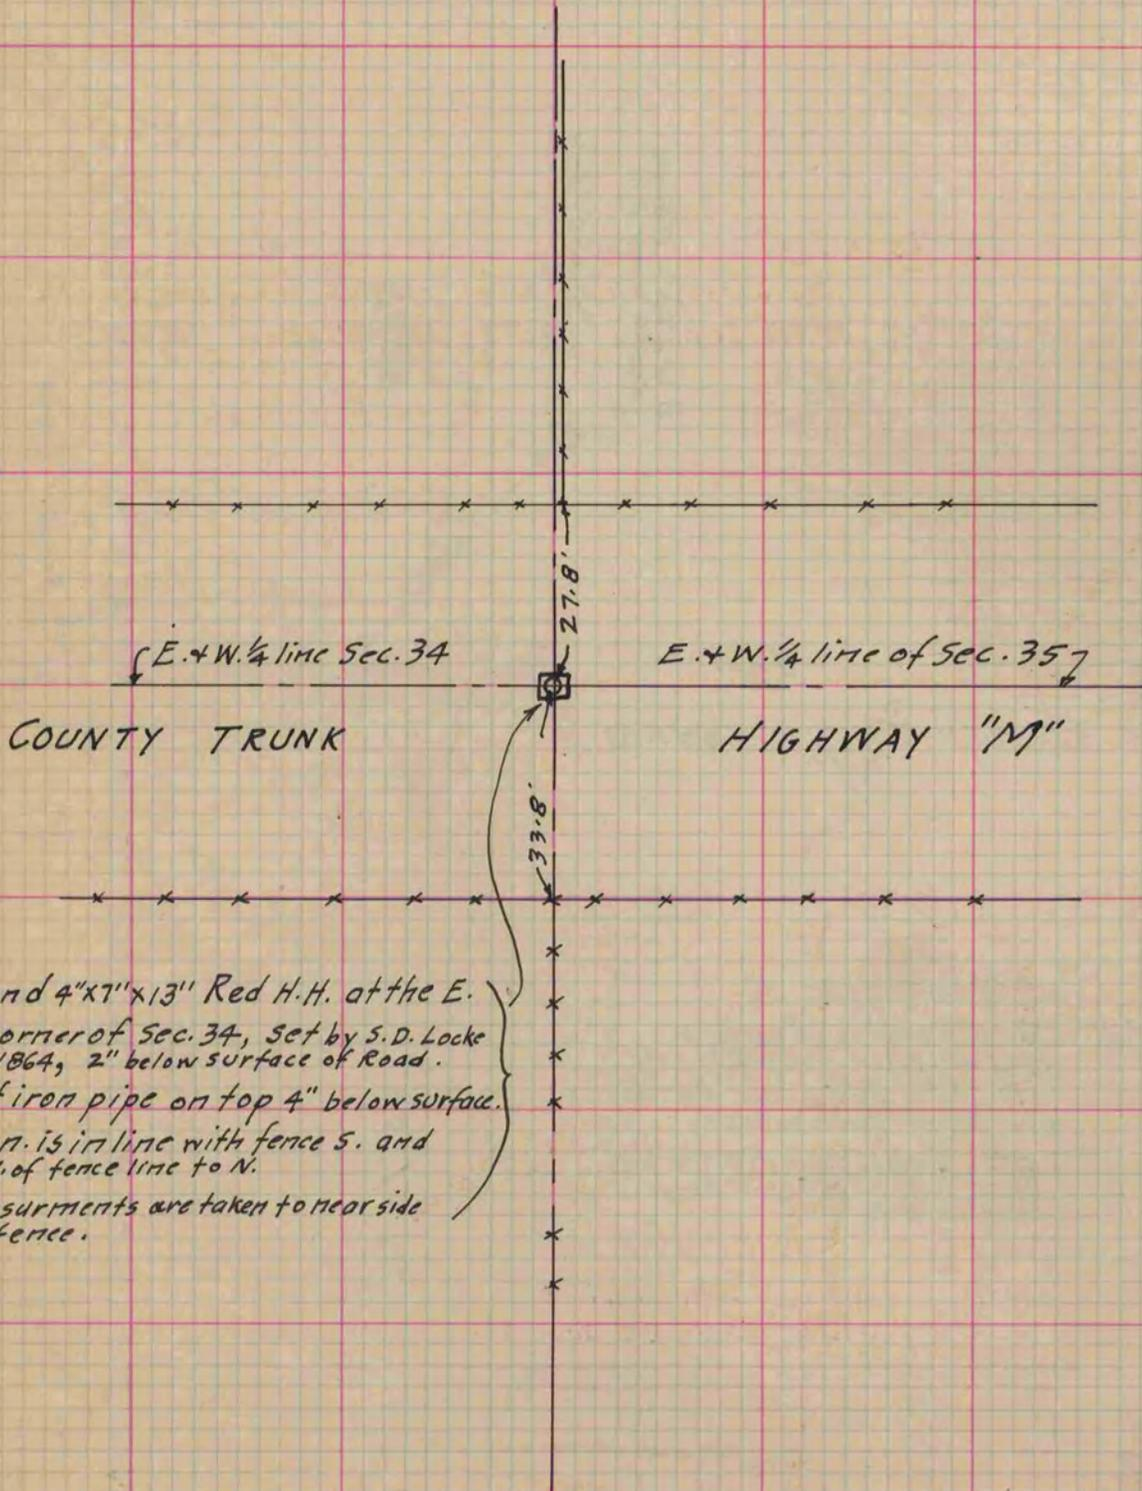 27.8'
E. & W. ¼ line Sec. 34
E. & W. ¼ line of Sec. 35
COUNTY TRUNK
HIGHWAY "M"
33.8'
nd 4"x7"x13" Red H.H. at the E.
orner of Sec. 34, set by S.D. Locke
1864, 2" below surface of Road.
iron pipe on top 4" below surface.
n. is in line with fence S. and
. of fence line to N.
surments are taken to near side
fence.